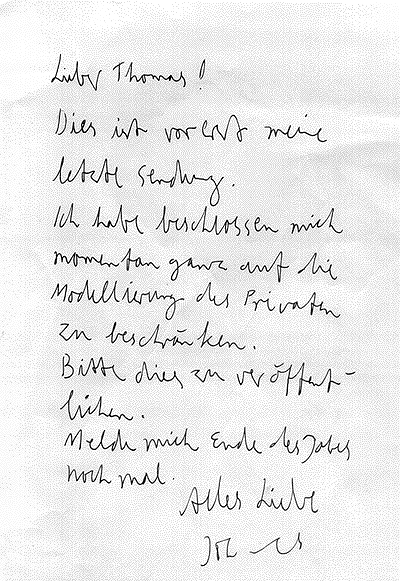 Lieber Thomas!
Dies ist vorerst meine
letzte Sendung.
Ich habe beschlossen mich
momentan ganz auf die
Modellierung des Privaten
zu beschränken.
Bitte dies zu veröffent-
lichen.
Melde mich Ende des Jahres
noch mal.
Alles Liebe